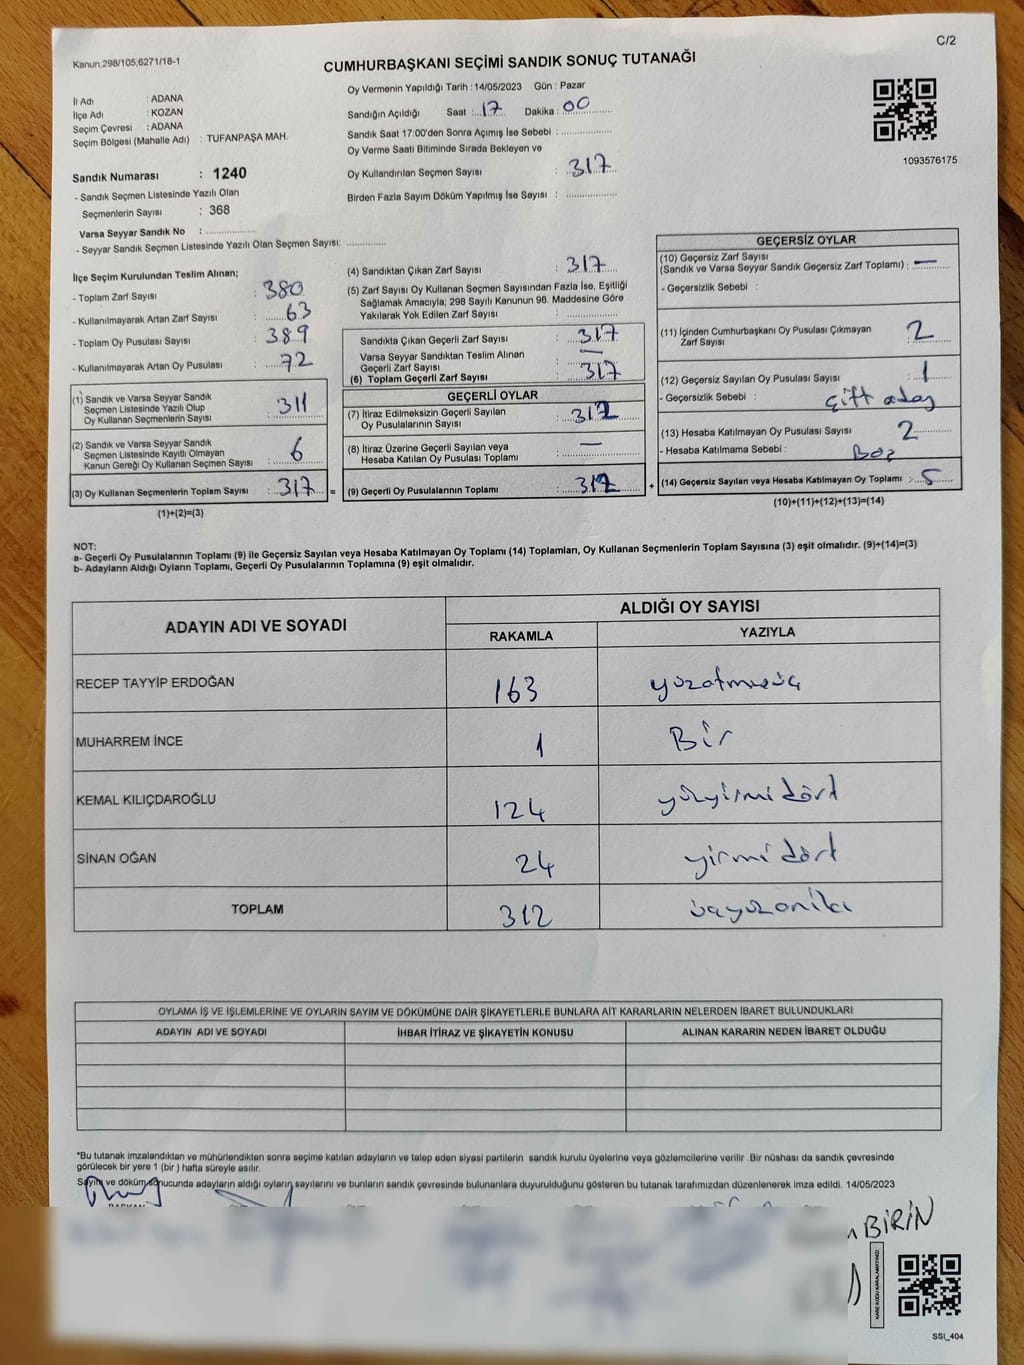 C/2
Kanun;298/105;6271/18-1
CUMHURBAŞKANI SEÇİMİ SANDIK SONUÇ TUTANAĞI
İl Adı : ADANA
İlçe Adı : KOZAN
Seçim Çevresi : ADANA
Seçim Bölgesi (Mahalle Adı) : TUFANPAŞA MAH.
Sandık Numarası : 1240
- Sandık Seçmen Listesinde Yazılı Olan
Seçmenlerin Sayısı : 368
Varsa Seyyar Sandık No : ..................
- Seyyar Sandık Seçmen Listesinde Yazılı Olan Seçmen Sayısı: ..............
Oy Vermenin Yapıldığı Tarih : 14/05/2023 Gün : Pazar
Sandığın Açıldığı Saat : 17 Dakika : 00
Sandık Saat 17:00'den Sonra Açımış İse Sebebi : ..................
Oy Verme Saati Bitiminde Sırada Bekleyen ve
Oy Kullandırılan Seçmen Sayısı : 317
Birden Fazla Sayım Döküm Yapılmış İse Sayısı : ..................
1093576175
İlçe Seçim Kurulundan Teslim Alınan;
- Toplam Zarf Sayısı : 380
- Kullanılmayarak Artan Zarf Sayısı : 63
- Toplam Oy Pusulası Sayısı : 389
- Kullanılmayarak Artan Oy Pusulası : 72
(1) Sandık ve Varsa Seyyar Sandık
Seçmen Listesinde Yazılı Olup
Oy Kullanan Seçmenlerin Sayısı : 311
(2) Sandık ve Varsa Seyyar Sandık
Seçmen Listesinde Kayıtlı Olmayan
Kanun Gereği Oy Kullanan Seçmen Sayısı : 6
(3) Oy Kullanan Seçmenlerin Toplam Sayısı : 317 =
(1)+(2)=(3)
(4) Sandıktan Çıkan Zarf Sayısı : 317
(5) Zarf Sayısı Oy Kullanan Seçmen Sayısından Fazla İse, Eşitliği
Sağlamak Amacıyla; 298 Sayılı Kanunun 98. Maddesine Göre
Yakılarak Yok Edilen Zarf Sayısı : ..................
Sandıkta Çıkan Geçerli Zarf Sayısı : 317
Varsa Seyyar Sandıktan Teslim Alınan
Geçerli Zarf Sayısı : —
(6) Toplam Geçerli Zarf Sayısı : 317
GEÇERLİ OYLAR
(7) İtiraz Edilmeksizin Geçerli Sayılan
Oy Pusulalarının Sayısı : 312
(8) İtiraz Üzerine Geçerli Sayılan veya
Hesaba Katılan Oy Pusulası Toplamı : —
(9) Geçerli Oy Pusulalarının Toplamı : 312 +
GEÇERSİZ OYLAR
(10) Geçersiz Zarf Sayısı
(Sandık ve Varsa Seyyar Sandık Geçersiz Zarf Toplamı) : —
- Geçersizlik Sebebi :
(11) İçinden Cumhurbaşkanı Oy Pusulası Çıkmayan
Zarf Sayısı : 2
(12) Geçersiz Sayılan Oy Pusulası Sayısı : 1
- Geçersizlik Sebebi : Çift aday
(13) Hesaba Katılmayan Oy Pusulası Sayısı 2
- Hesaba Katılmama Sebebi : Boş
(14) Geçersiz Sayılan veya Hesaba Katılmayan Oy Toplamı : 5
(10)+(11)+(12)+(13)=(14)
NOT:
a- Geçerli Oy Pusulalarının Toplamı (9) ile Geçersiz Sayılan veya Hesaba Katılmayan Oy Toplamı (14) Toplamları, Oy Kullanan Seçmenlerin Toplam Sayısına (3) eşit olmalıdır. (9)+(14)=(3)
b- Adayların Aldığı Oyların Toplamı, Geçerli Oy Pusulalarının Toplamına (9) eşit olmalıdır.
ADAYIN ADI VE SOYADI
ALDIĞI OY SAYISI
RAKAMLA YAZIYLA
RECEP TAYYİP ERDOĞAN 163 yüzatmışüç
MUHARREM İNCE 1 Bir
KEMAL KILIÇDAROĞLU 124 yüzyirmidört
SİNAN OĞAN 24 yirmidört
TOPLAM 312 üçyüzoniki
OYLAMA İŞ VE İŞLEMLERİNE VE OYLARIN SAYIM VE DÖKÜMÜNE DAİR ŞİKAYETLERLE BUNLARA AİT KARARLARIN NELERDEN İBARET BULUNDUKLARI
ADAYIN ADI VE SOYADI İHBAR İTİRAZ VE ŞİKAYETİN KONUSU ALINAN KARARIN NEDEN İBARET OLDUĞU
*Bu tutanak imzalandıktan ve mühürlendikten sonra seçime katılan adayların ve talep eden siyasi partilerin sandık kurulu üyelerine veya gözlemcilerine verilir .Bir nüshası da sandık çevresinde
görülecek bir yere 1 (bir ) hafta süreyle asılır.
Sayım ve döküm sonucunda adayların aldığı oyların sayılarını ve bunların sandık çevresinde bulunanlara duyurulduğunu gösteren bu tutanak tarafımızdan düzenlenerek imza edildi. 14/05/2023
BAŞKAN
BİRİN
KARE KODU KARALAMAYINIZ!
SSI_404